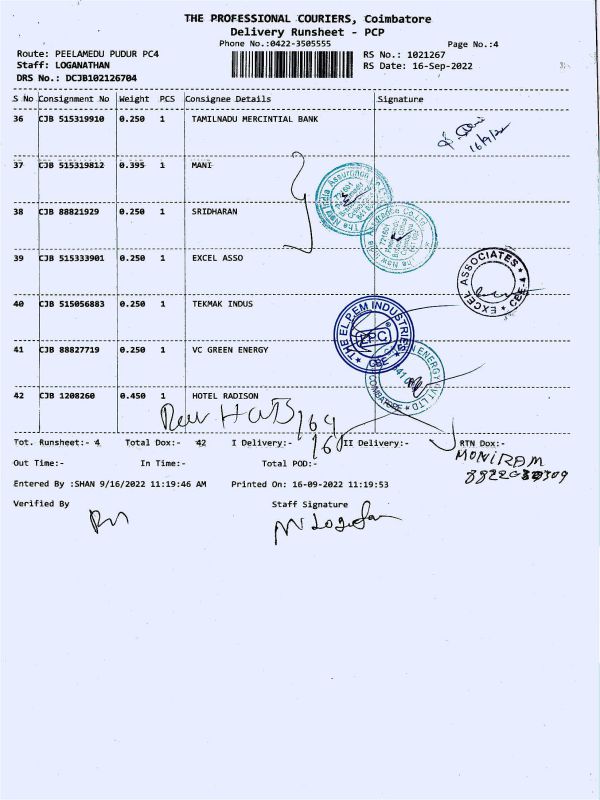 THE PROFESSIONAL COURIERS, Coimbatore
Delivery Runsheet - PCP
Phone No.:0422-3505555
Page No.:4
Route: PEELAMEDU PUDUR PC4
RS No.: 1021267
Staff: LOGANATHAN
RS Date: 16-Sep-2022
DRS No.: DCJB102126704
S No Consignment No Weight PCS Consignee Details Signature
36 CJB 515319910 0.250 1 TAMILNADU MERCINTIAL BANK
16/9/22
37 CJB 515319812 0.395 1 MANI
The New India Assurance Co.Ltd.
721601
38 CJB 88821929 0.250 1 SRIDHARAN
The New India Assurance Co.Ltd.
721601
39 CJB 515333901 0.250 1 EXCEL ASSO
EXCEL ASSOCIATES CBE-4
40 CJB 515056883 0.250 1 TEKMAK INDUS
THE EL.P.EM INDUSTRIES
EPC
CBE
41 CJB 88827719 0.250 1 VC GREEN ENERGY
ENERGY PVT LTD
COIMBATORE
42 CJB 1208260 0.450 1 HOTEL RADISON
Tot. Runsheet:- 4 Total Dox:- 42 I Delivery:- II Delivery:- RTN Dox:-
MONIRAM
Out Time:- In Time:- Total POD:-
Entered By :SHAN 9/16/2022 11:19:46 AM Printed On: 16-09-2022 11:19:53
Verified By Staff Signature